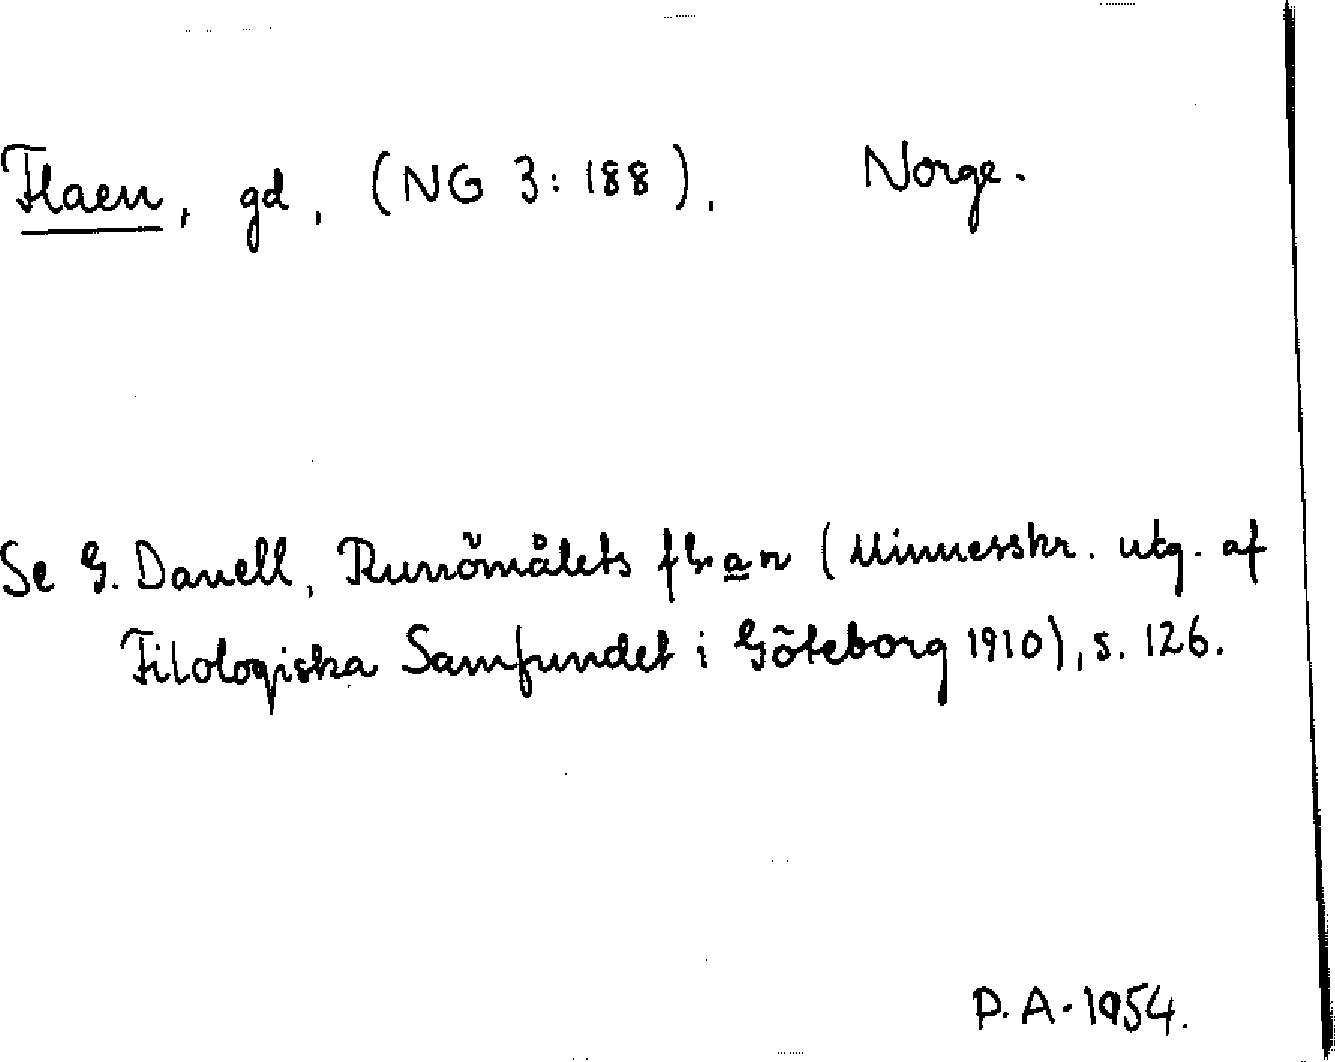 Flaen, gd, (NG 3: 188). Norge.
Se G. Danell, Runömålets (Minnesskr. utg. af
Filologiska Samfundet i Göteborg 1910), s. 126.
P.A. 1954.